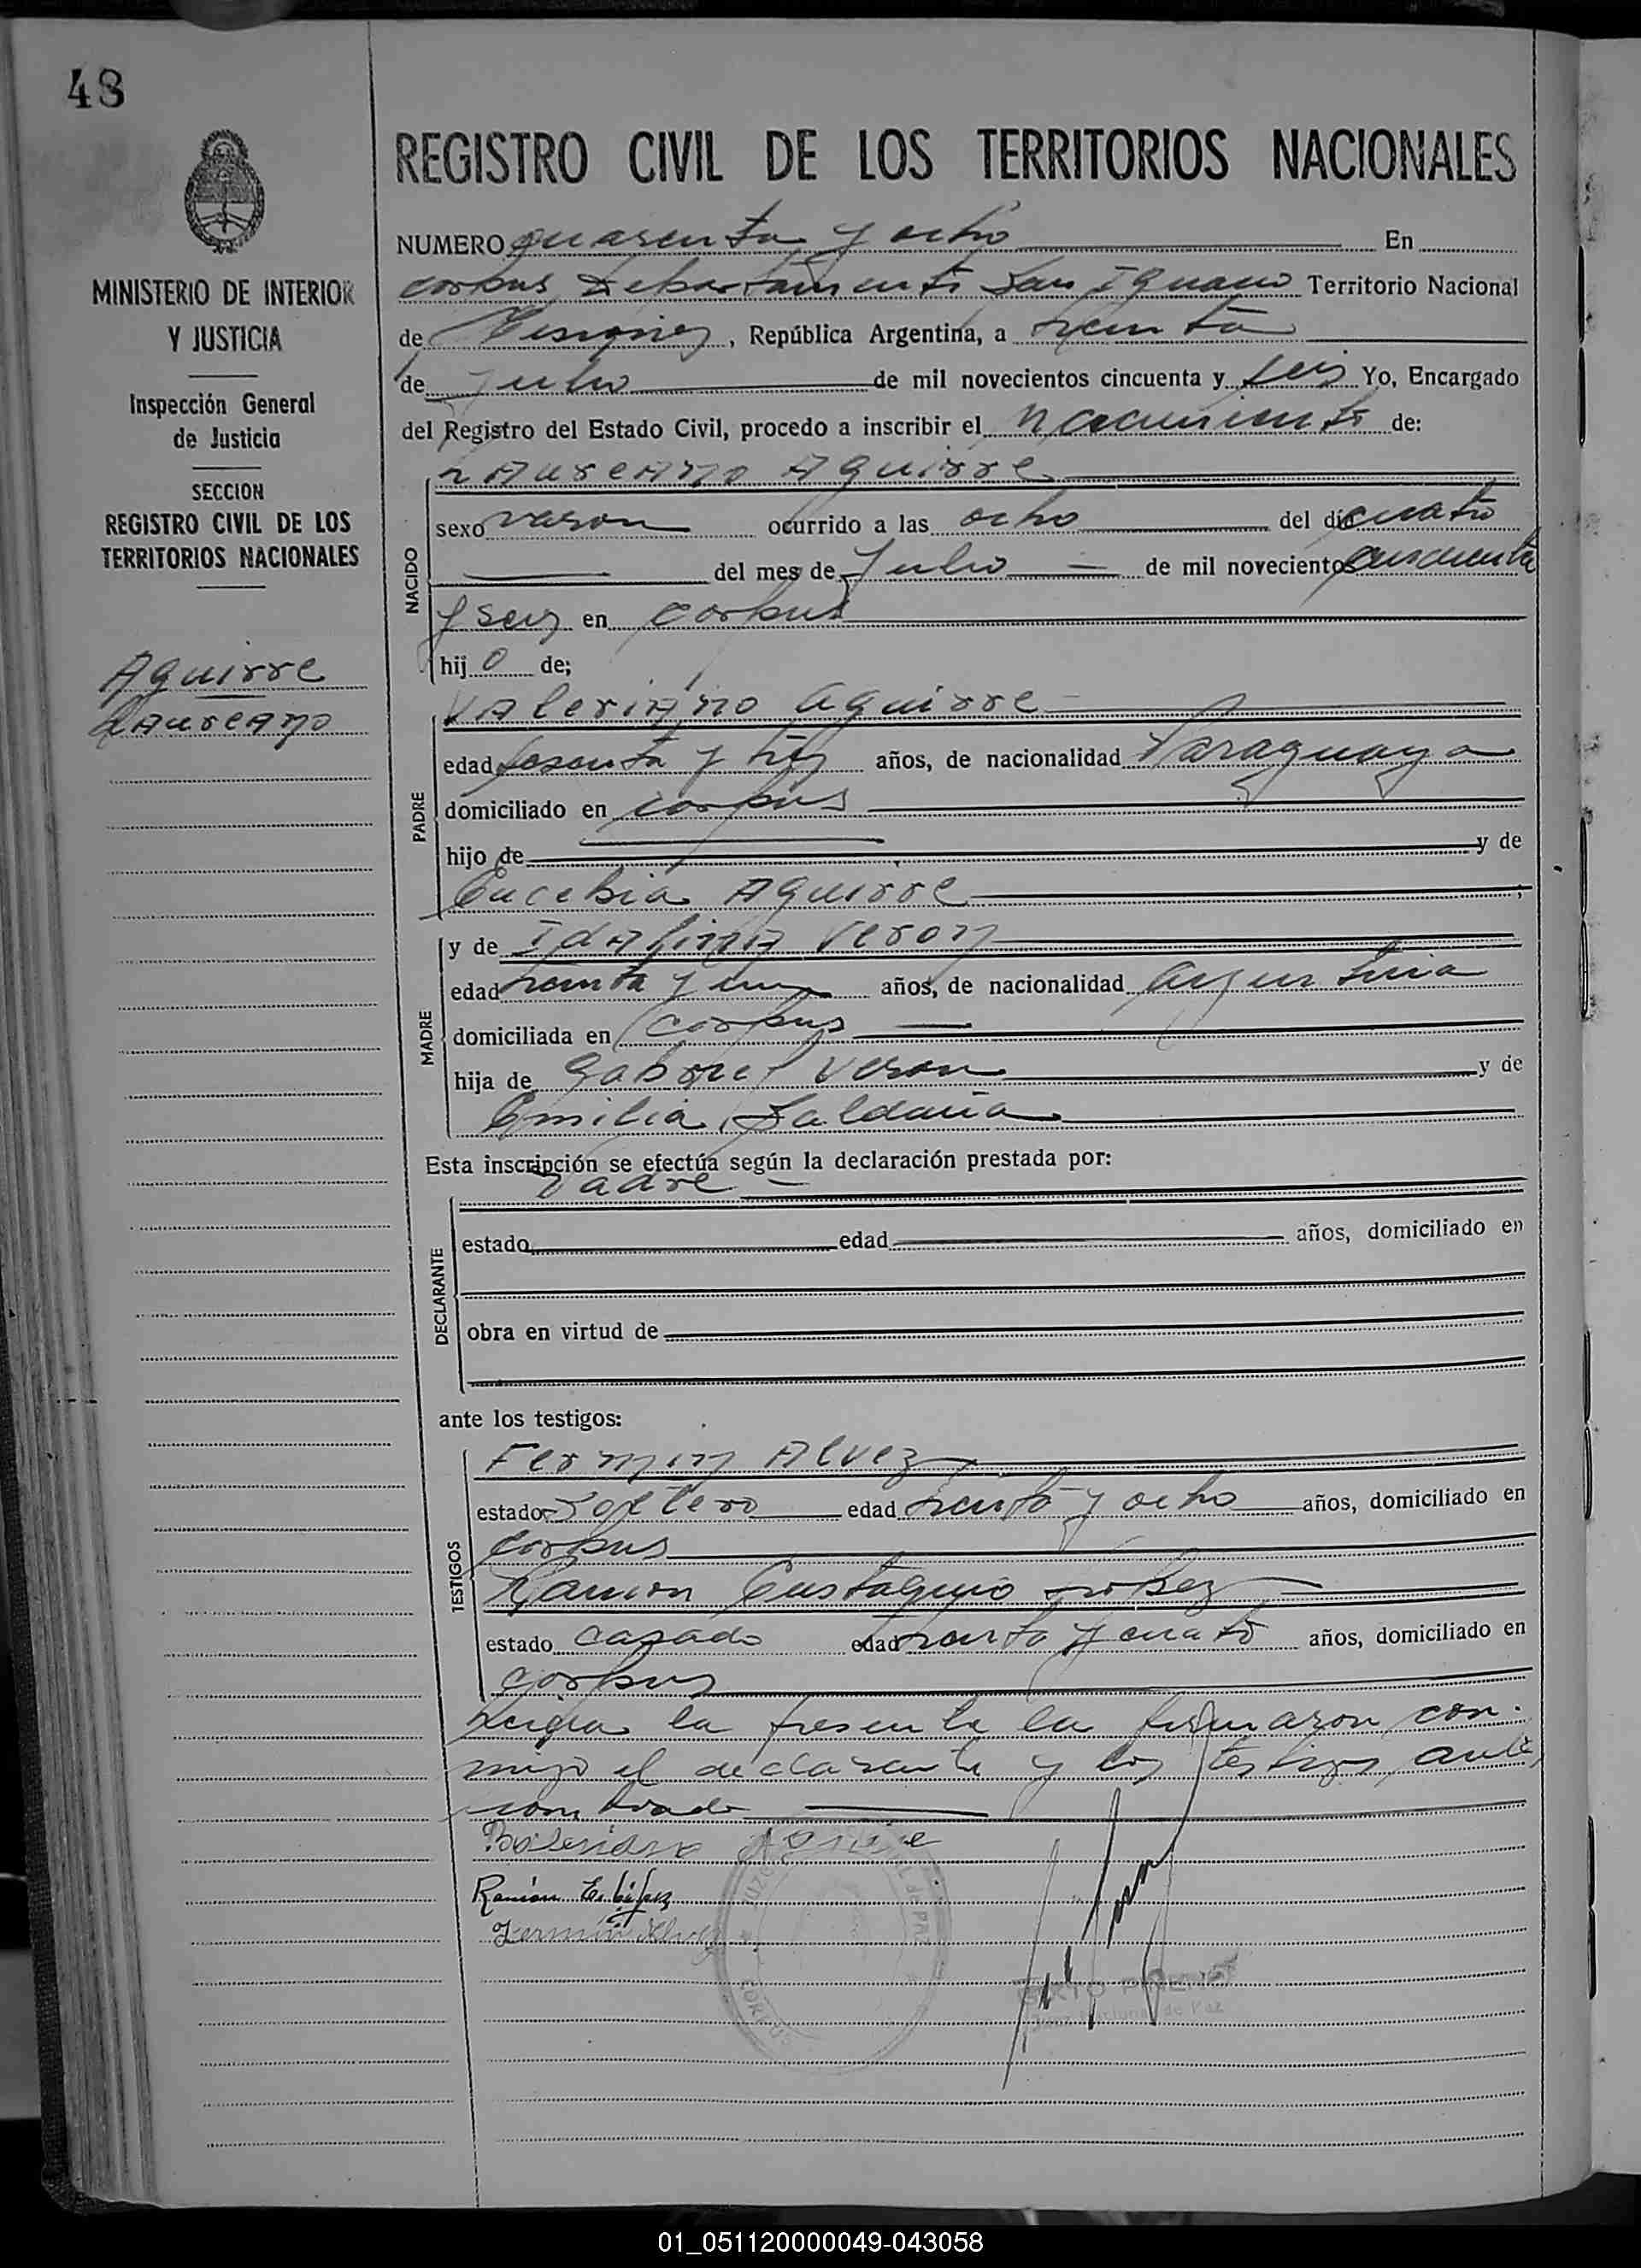 48
REGISTRO CIVIL DE LOS TERRITORIOS NACIONALES
MINISTERIO DE INTERIOR
Y JUSTICIA
Inspección General
de Justicia
SECCION
REGISTRO CIVIL DE LOS
TERRITORIOS NACIONALES
Aguirre
Laureano
NUMERO quarenta y ocho En
corpus Departamento San Ignacio Territorio Nacional
de Misiones, República Argentina, a treinta
de Julio de mil novecientos cincuenta y seis Yo, Encargado
del Registro del Estado Civil, procedo a inscribir el nacimiento de:
NACIDO
LAUREANO Aguirre
sexo varon ocurrido a las ocho del día cuatro
del mes de Julio de mil novecientos cincuenta
y seis en corpus
hijo de;
PADRE
VAleriAno aguirre
edad sesenta y tres años, de nacionalidad Paraguaya
domiciliado en corpus
hijo de y de
Eucebia Aguirre
MADRE
y de IdAlinA Veron
edad treinta y un años, de nacionalidad argentina
domiciliada en Corpus
hija de Gabriel Veron y de
Emilia Saldaña
Esta inscripción se efectúa según la declaración prestada por:
DECLARANTE
Padre
estado edad años, domiciliado en
obra en virtud de
ante los testigos:
TESTIGOS
Fermin Alvez
estado Soltero edad treinta y ocho años, domiciliado en
corpus
Ramon Eustaquio López
estado casado edad treinta y cuatro años, domiciliado en
corpus
Leida la presente la firmaron con-
migo el declarante y los testigos ante
nombrado
Baleriano Aguire
Ramón E. López
Fermin Alvez
JUZG DE PAZ
CORPUS
SIXTO
Juez Nacional de Paz
01_051120000049-043058